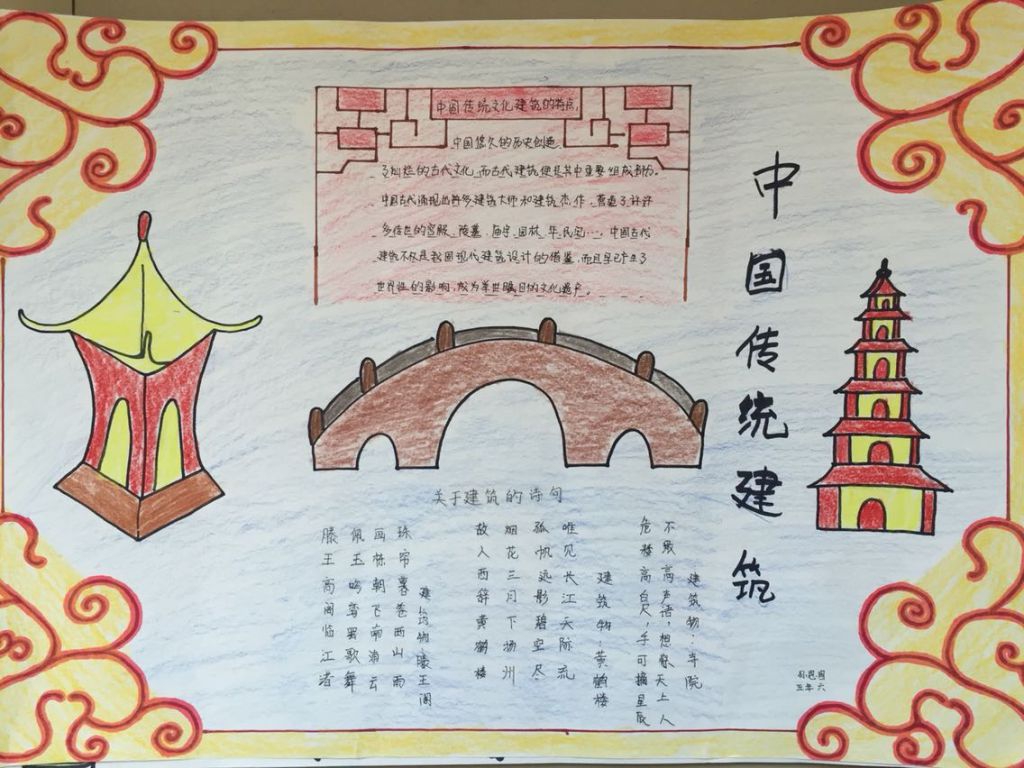 中国传统建筑
中国传统文化建筑的特点
中国悠久的历史创造
了灿烂的古代文化,而古代建筑便是其中重要组成部分。
中国古代涌现出许多建筑大师和建筑杰作,营造了许许
多传世的宫殿、陵墓、庙宇、园林、华民宅…,中国古代
建筑不仅是我国现代建筑设计的借鉴,而且早已产生了
世界性的影响,成为举世瞩目的文化遗产。
关于建筑的诗句
建筑物:寺院
不敢高声语,想恐天上人
危楼高百尺,手可摘星辰
建筑物:黄鹤楼
唯见长江天际流
孤帆远影碧空尽
烟花三月下扬州
故人西辞黄鹤楼
建筑物滕王阁
珠帘暮卷西山雨
画栋朝飞南浦云
佩玉鸣鸾罢歌舞
滕王高阁临江渚
五年六